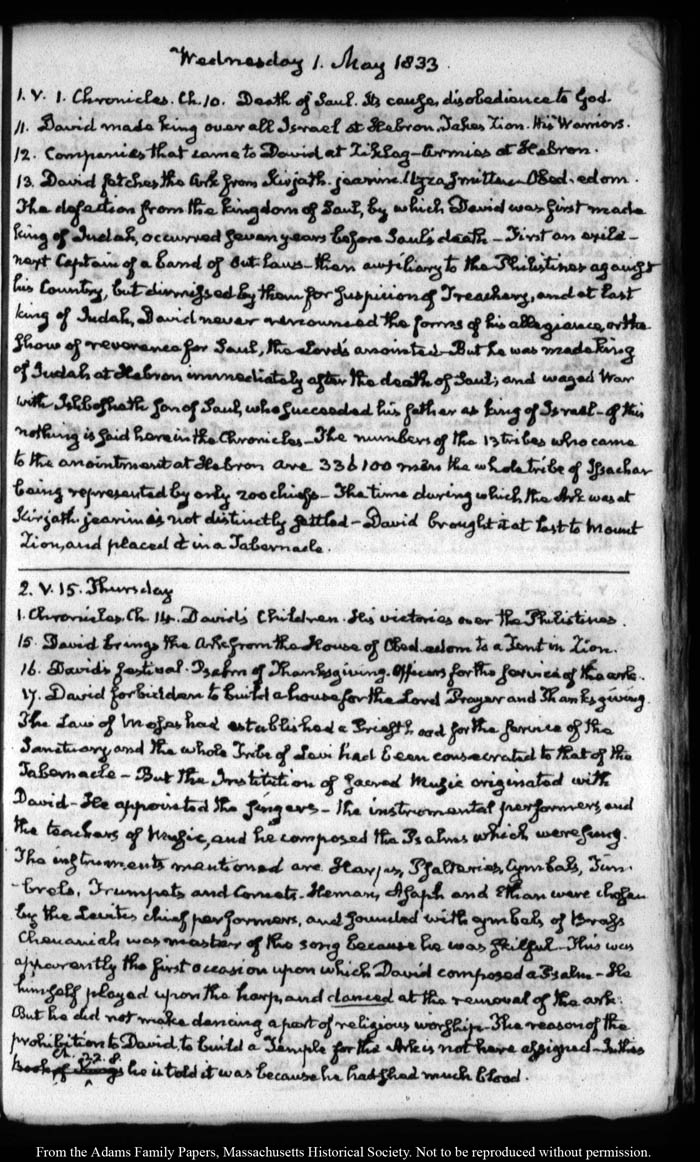 Wednesday 1. May 1833.
1. V. 1. Chronicles. Ch. 10. Death of Saul. Its cause, disobedience to God.
11. David made king over all Israel at Hebron. Takes Zion. His Warriors.
12. Companies that came to David at Ziklag – Armies at Hebron.
13. David fetches the Ark from Kirjath-jearim. Uzza smitten – Obed-edom.
The defection from the kingdom of Saul, by which David was first made
king of Judah, occurred seven years before Saul's death – First an exile –
next Captain of a band of Out laws – then auxiliary to the Philistines against
his Country, but dismissed by them for suspicion of Treachery, and at last
king of Judah, David never renounced the forms of his allegiance, or the
show of reverence for Saul, the Lord's anointed – But he was made king
of Judah at Hebron immediately after the death of Saul; and waged War
with Ishbosheth son of Saul, who succeeded his father as king of Israel – of this
nothing is said here in the Chronicles – The numbers of the 13 tribes who came
to the anointment at Hebron are 336100 men the whole tribe of Issachar
being represented by only 200 chiefs – The time during which the Ark was at
Kirjath-jearim is not distinctly settled – David brought it at last to Mount
Zion, and placed it in a Tabernacle.
2. V. 15. Thursday
1. Chronicles. Ch. 14. David's Children. His victories over the Philistines.
15. David brings the Ark from the House of Obed-edom to a Tent in Zion.
16. David's festival. Psalm of Thanksgiving. Officers for the service of the ark.
17. David forbidden to build a house for the Lord Prayer and Thanksgiving.
The Law of Moses had established a Priesthood for the service of the
Sanctuary and the whole Tribe of Levi had been consecrated to that of the
Tabernacle – But the Institution of sacred Music originated with
David – He appointed the singers – the instrumental performers, and
the teachers of Music, and he composed the Psalms which were sung.
The instruments mentioned are Harps, Psalteries, Cymbals, Tim-
-brels, Trumpets and Cornets. Heman, Asaph and Ethan were chosen
by the Levites chief performers, and sounded with cymbals of Brass
Chenaniah was master of the song because he was skilful – This was
apparently the first occasion upon which David composed a Psalm – He
himself played upon the harp, and danced at the removal of the ark.
But he did not make dancing a part of religious worship – The reason of the
prohibition to David, to build a Temple for the Ark is not here assigned – In this
Ch. 22. 8.
Book of Kings he is told it was because he had shed much blood.
From the Adams Family Papers, Massachusetts Historical Society. Not to be reproduced without permission.